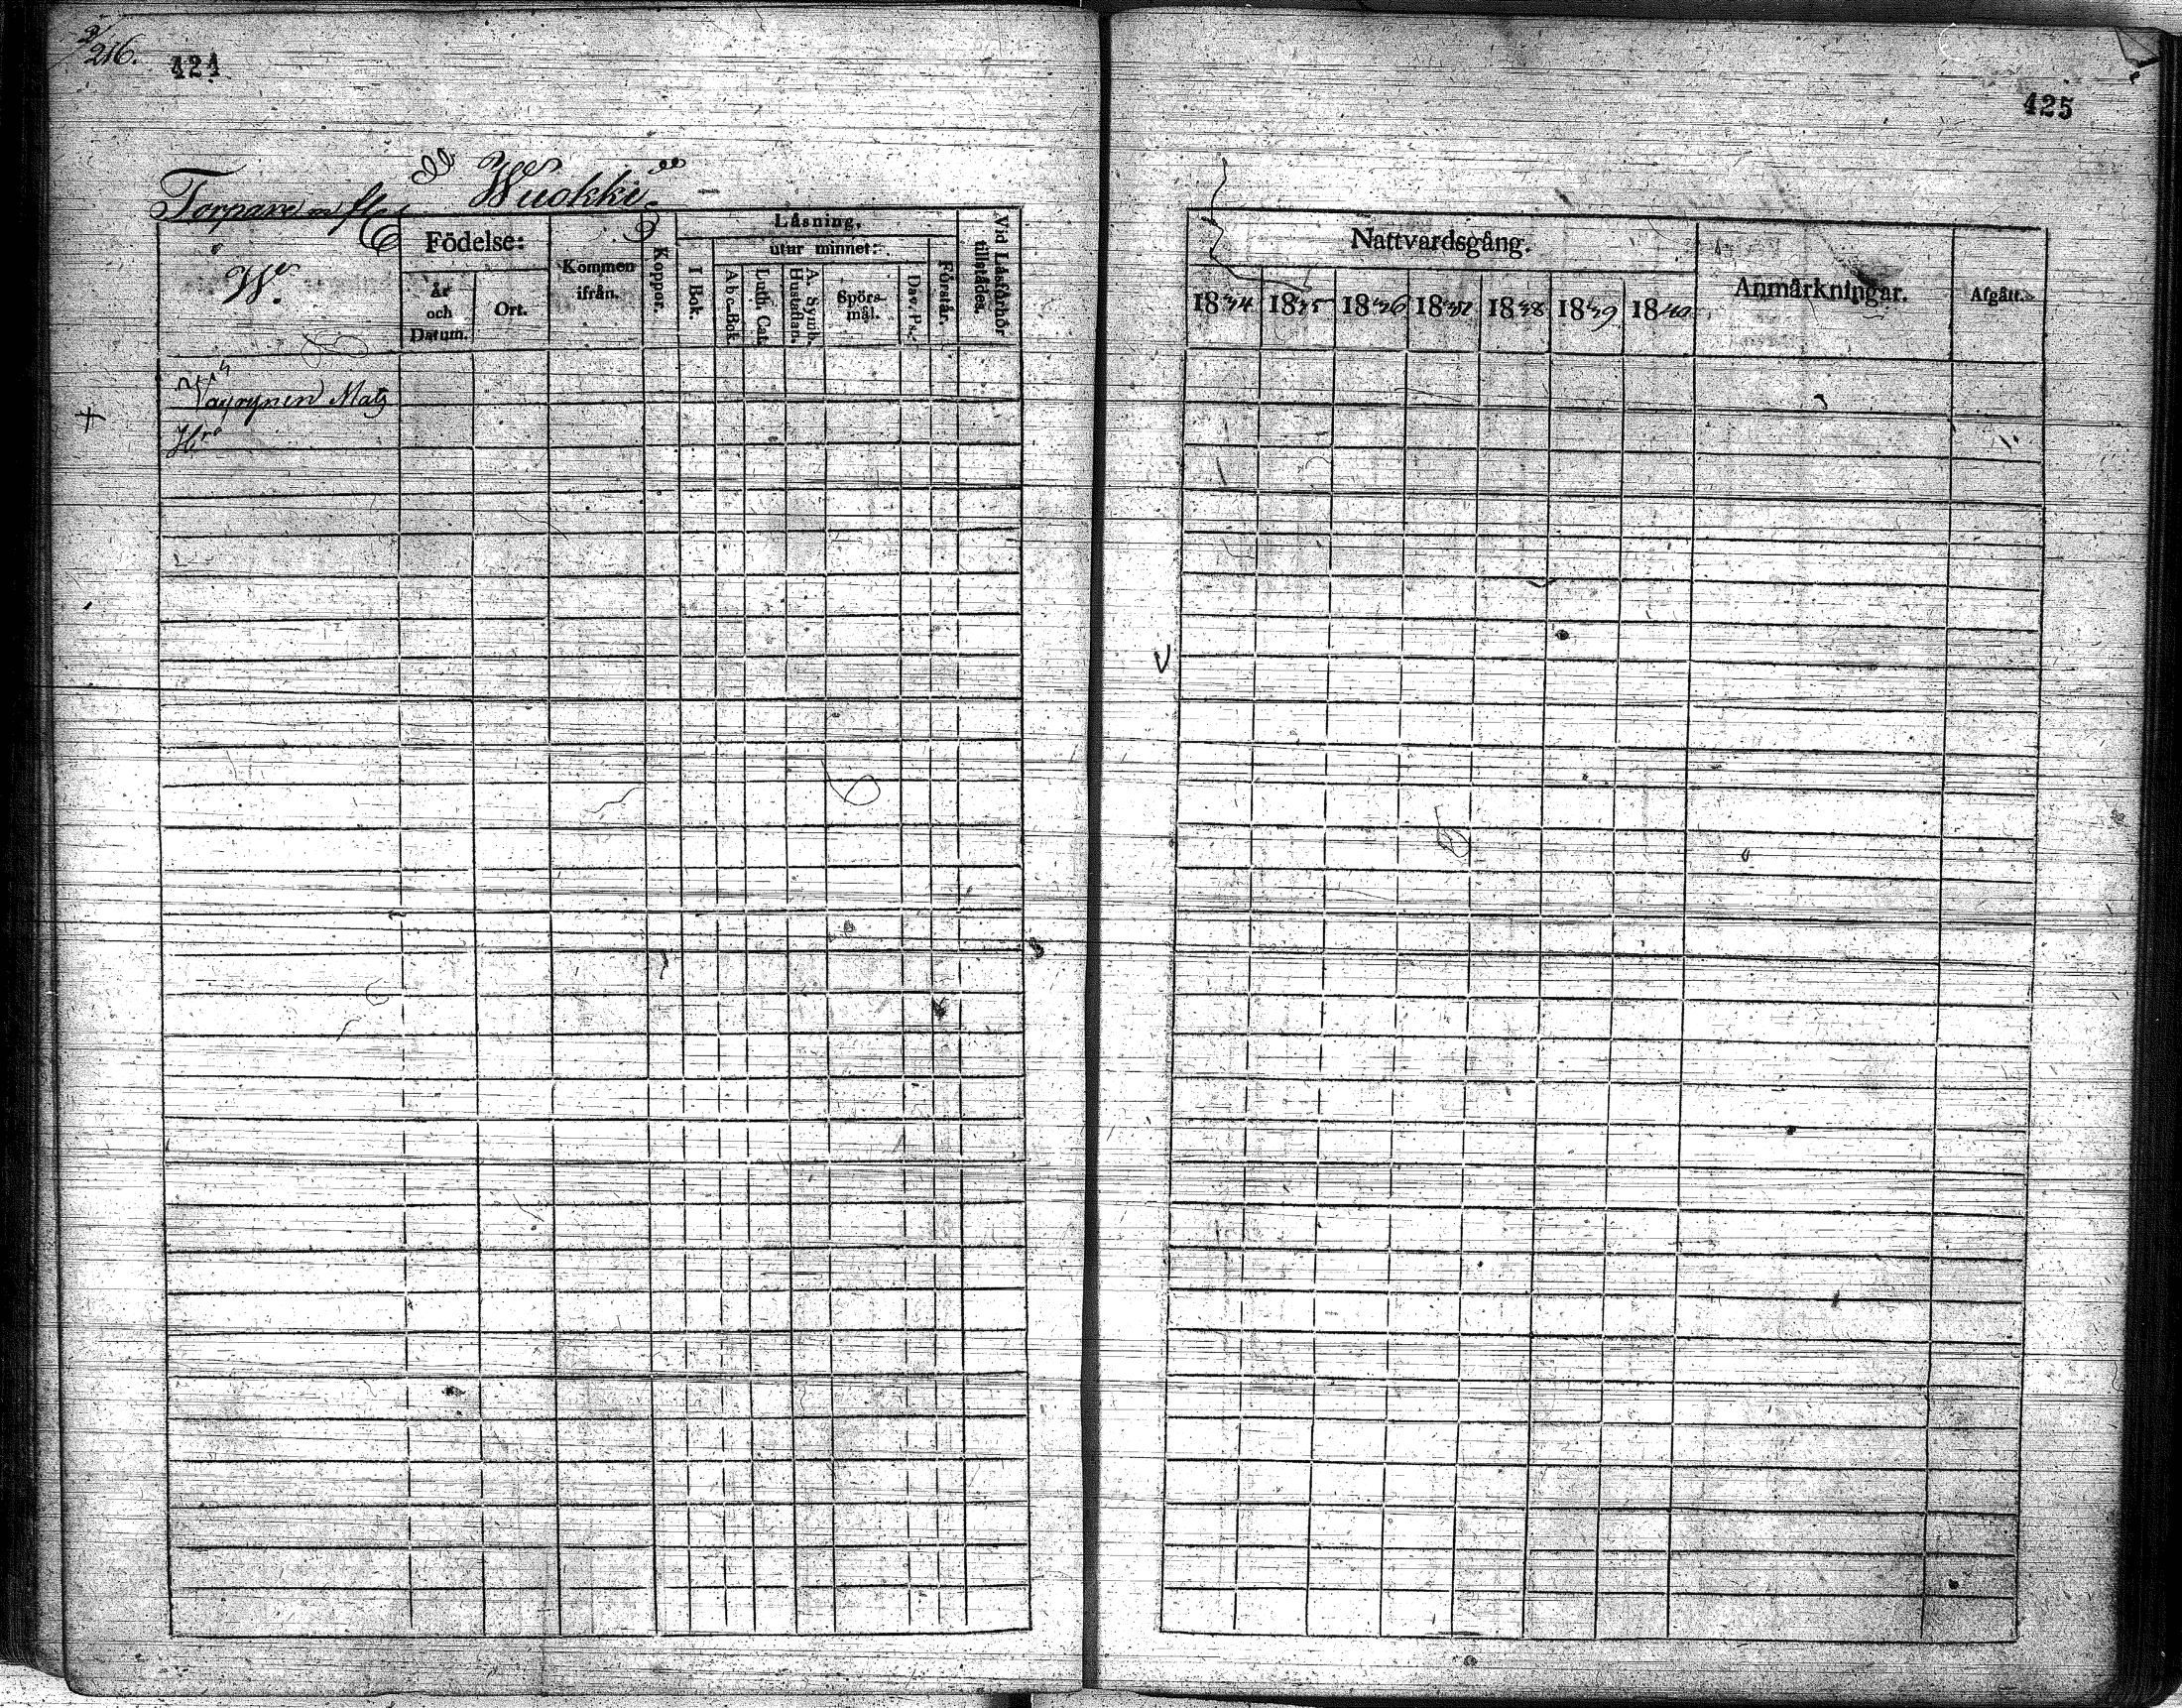 216.
424
Wuokki.
Torpare
W.
Födelse:
År
och
Datum.
Ort.
Kommen
ifrån.
Koppor.
Läsning,
I Bok.
utur minnet:
A b c-Bok.
Luth. Cat.
A. Symb.
Hustaflan.
Spörs-
mål.
Dav. Ps.
Förstår.
Vid Läsförhör
tillstädes.
Mats
425
Nattvardsgång.
1834
1835
1836
1837
1838
1839
1840
Anmärkningar.
Afgått.